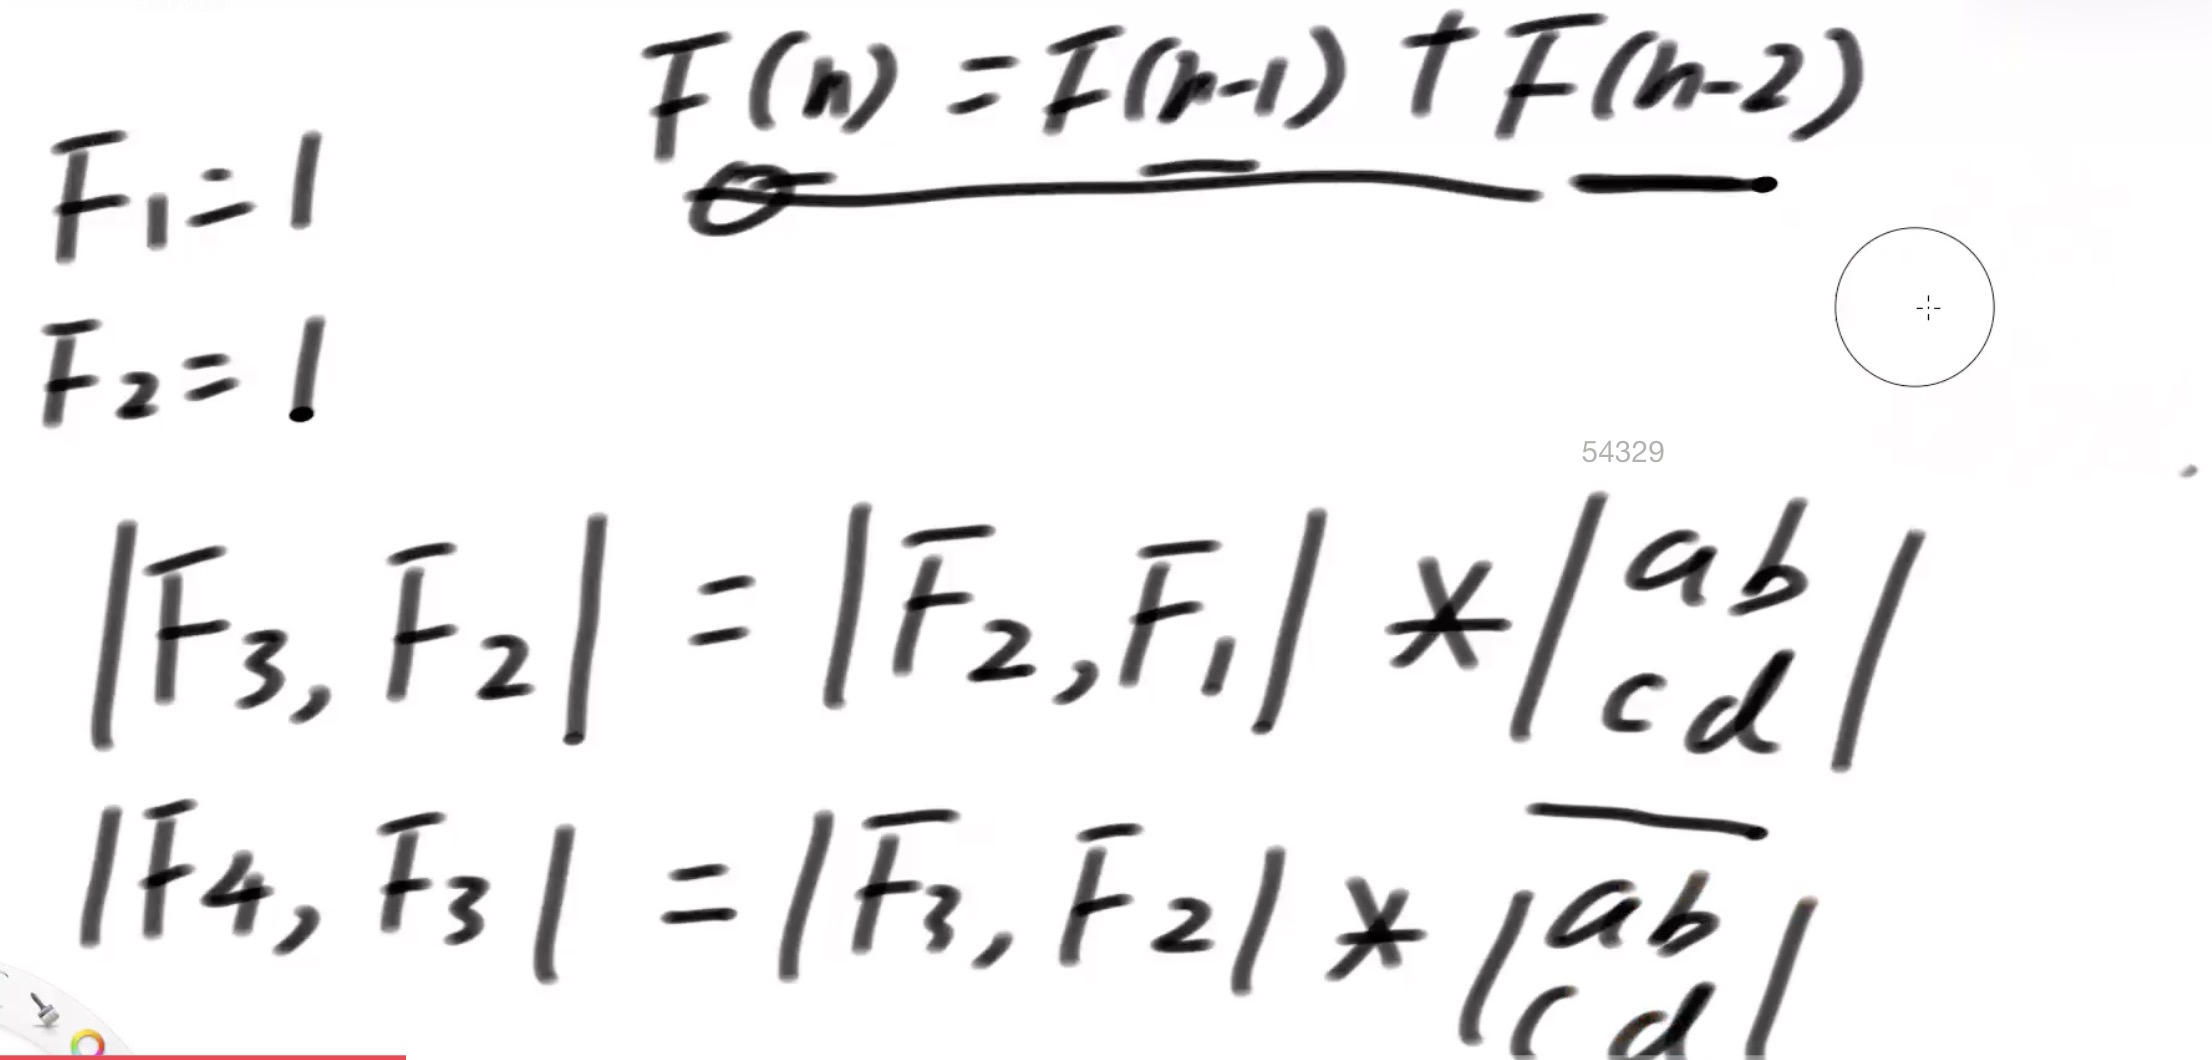 F(n) = F(n-1) + F(n-2)
F1 = 1
F2 = 1
54329
|F3, F2| = |F2, F1| * |a b
c d|
|F4, F3| = |F3, F2| * |a b
c d|